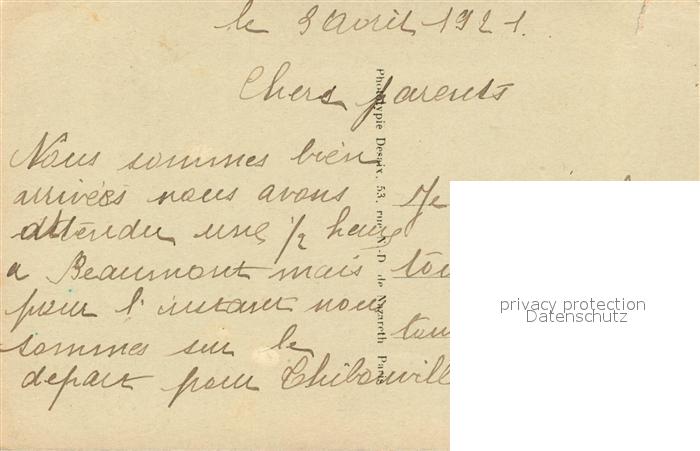 le 3 avril 1921.
Chers parents
Nous sommes bien
arrivées nous avons
attendu une 1/2 heure
a Beaumont mais
pour l'instant nous
sommes sur le
depart pour Thibouvill
Je
tou
tou
Phototypie Desaix, 53, rue N.-D. de Nazareth Paris
privacy protection
Datenschutz